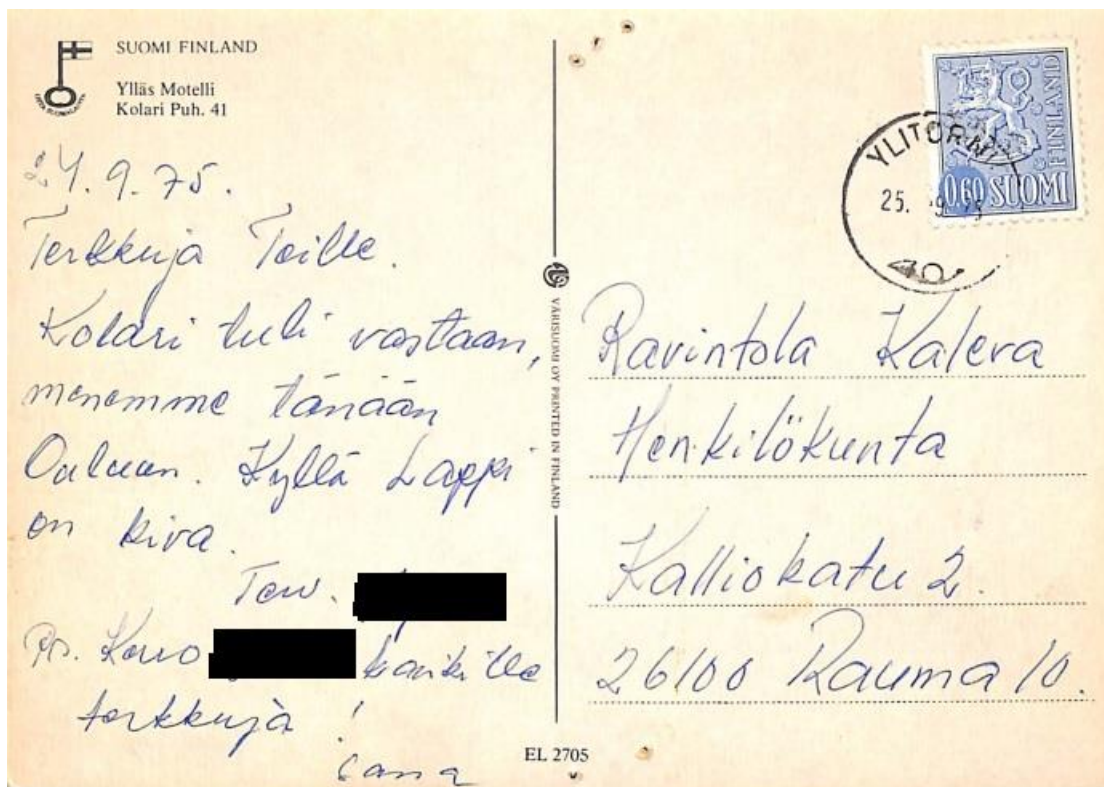 SUOMI FINLAND
Ylläs Motelli
Kolari Puh. 41
24.9.75.
Terkkuja Teille.
Kolari tuli vastaan,
menemme tänään
Ouluun. Kyllä Lappi
on kiva.
Terv.
Ps. kaikille
terkkuja !
sama
VÄRISUOMI OY PRINTED IN FINLAND
EL 2705
0,60 SUOMI
FINLAND
YLITORNI
25. 9. 75
Ravintola Kaleva
Henkilökunta
Kalliokatu 2.
26100 Rauma 10.